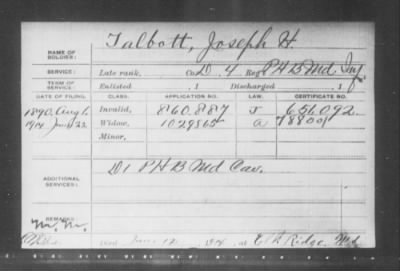 NAME OF SOLDIER: Talbott, Joseph H.
SERVICE: Late rank, Co. D. 4 Reg PHB Md Inf.
TERM OF SERVICE: Enlisted , 1 Discharged , 1
DATE OF FILING. CLASS. APPLICATION NO. LAW. CERTIFICATE NO.
1890, Aug 1. Invalid, 860.887 J 656.092
1914 June 22 Widow, 1029565 A 788001
Minor,
ADDITIONAL SERVICES: D1 PHB Md Cav.
REMARKS:
died June 12 1914, at Elk Ridge, Md